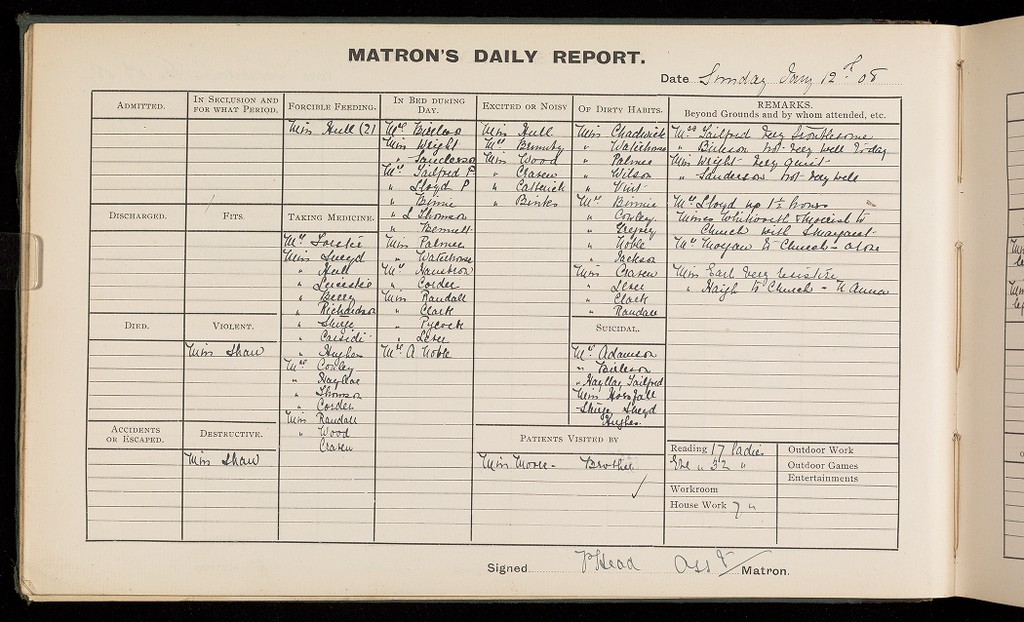 MATRON'S DAILY REPORT.
Date Sunday Jany 12th 08
ADMITTED.
IN SECLUSION AND
FOR WHAT PERIOD.
FORCIBLE FEEDING.
Miss Hull (2)
IN BED DURING
DAY.
Miss Wright
" Sanderson
Mrs Tailford P
" Lloyd P
" Binnie
" L Thomson
" Bennett
Miss Palmer
" Waterhouse
Mrs
" Corder
Miss Randall
" Clark
" Pycock
" Lever
Mrs A Noble
EXCITED OR NOISY
Miss Hull
Mrs
Miss Wood
" Craven
" Catterick
" Binks
OF DIRTY HABITS.
Miss Chadwick
" Waterhouse
" Palmer
" Wilson
"
Mrs Binnie
" Cowley
"
" Noble
" Jackson
Miss Craven
" Lever
" Clark
" Randall
REMARKS.
Beyond Grounds and by whom attended, etc.
Mrs Tailford very troublesome
" not very well today
Miss Wright very quiet
" Sanderson not very well
Mrs Lloyd up 1½ hours
Misses Whitworth to
Church with
Mrs Morgan to Church - alone
Miss Earl very resistive
" Haigh to Church - N Anna
DISCHARGED.
FITS.
TAKING MEDICINE.
Mrs
Miss
" Hull
"
" Berry
" Richardson
"
"
" Hughes
Mrs Cowley
" Hayllar
" Thomson
" Corder
Miss Randall
" Wood
Craven
DIED.
VIOLENT.
Miss Shaw
SUICIDAL.
Mrs Adamson
"
" Hayllar, Tailford
Miss Horsfall
Hughes.
ACCIDENTS
OR ESCAPED.
DESTRUCTIVE.
Miss Shaw
PATIENTS VISITED BY
Miss Moore - Brother
Reading 17 ladies
" 32 "
Workroom
House Work 7 "
Outdoor Work
Outdoor Games
Entertainments
Signed P Head Asst/ Matron.